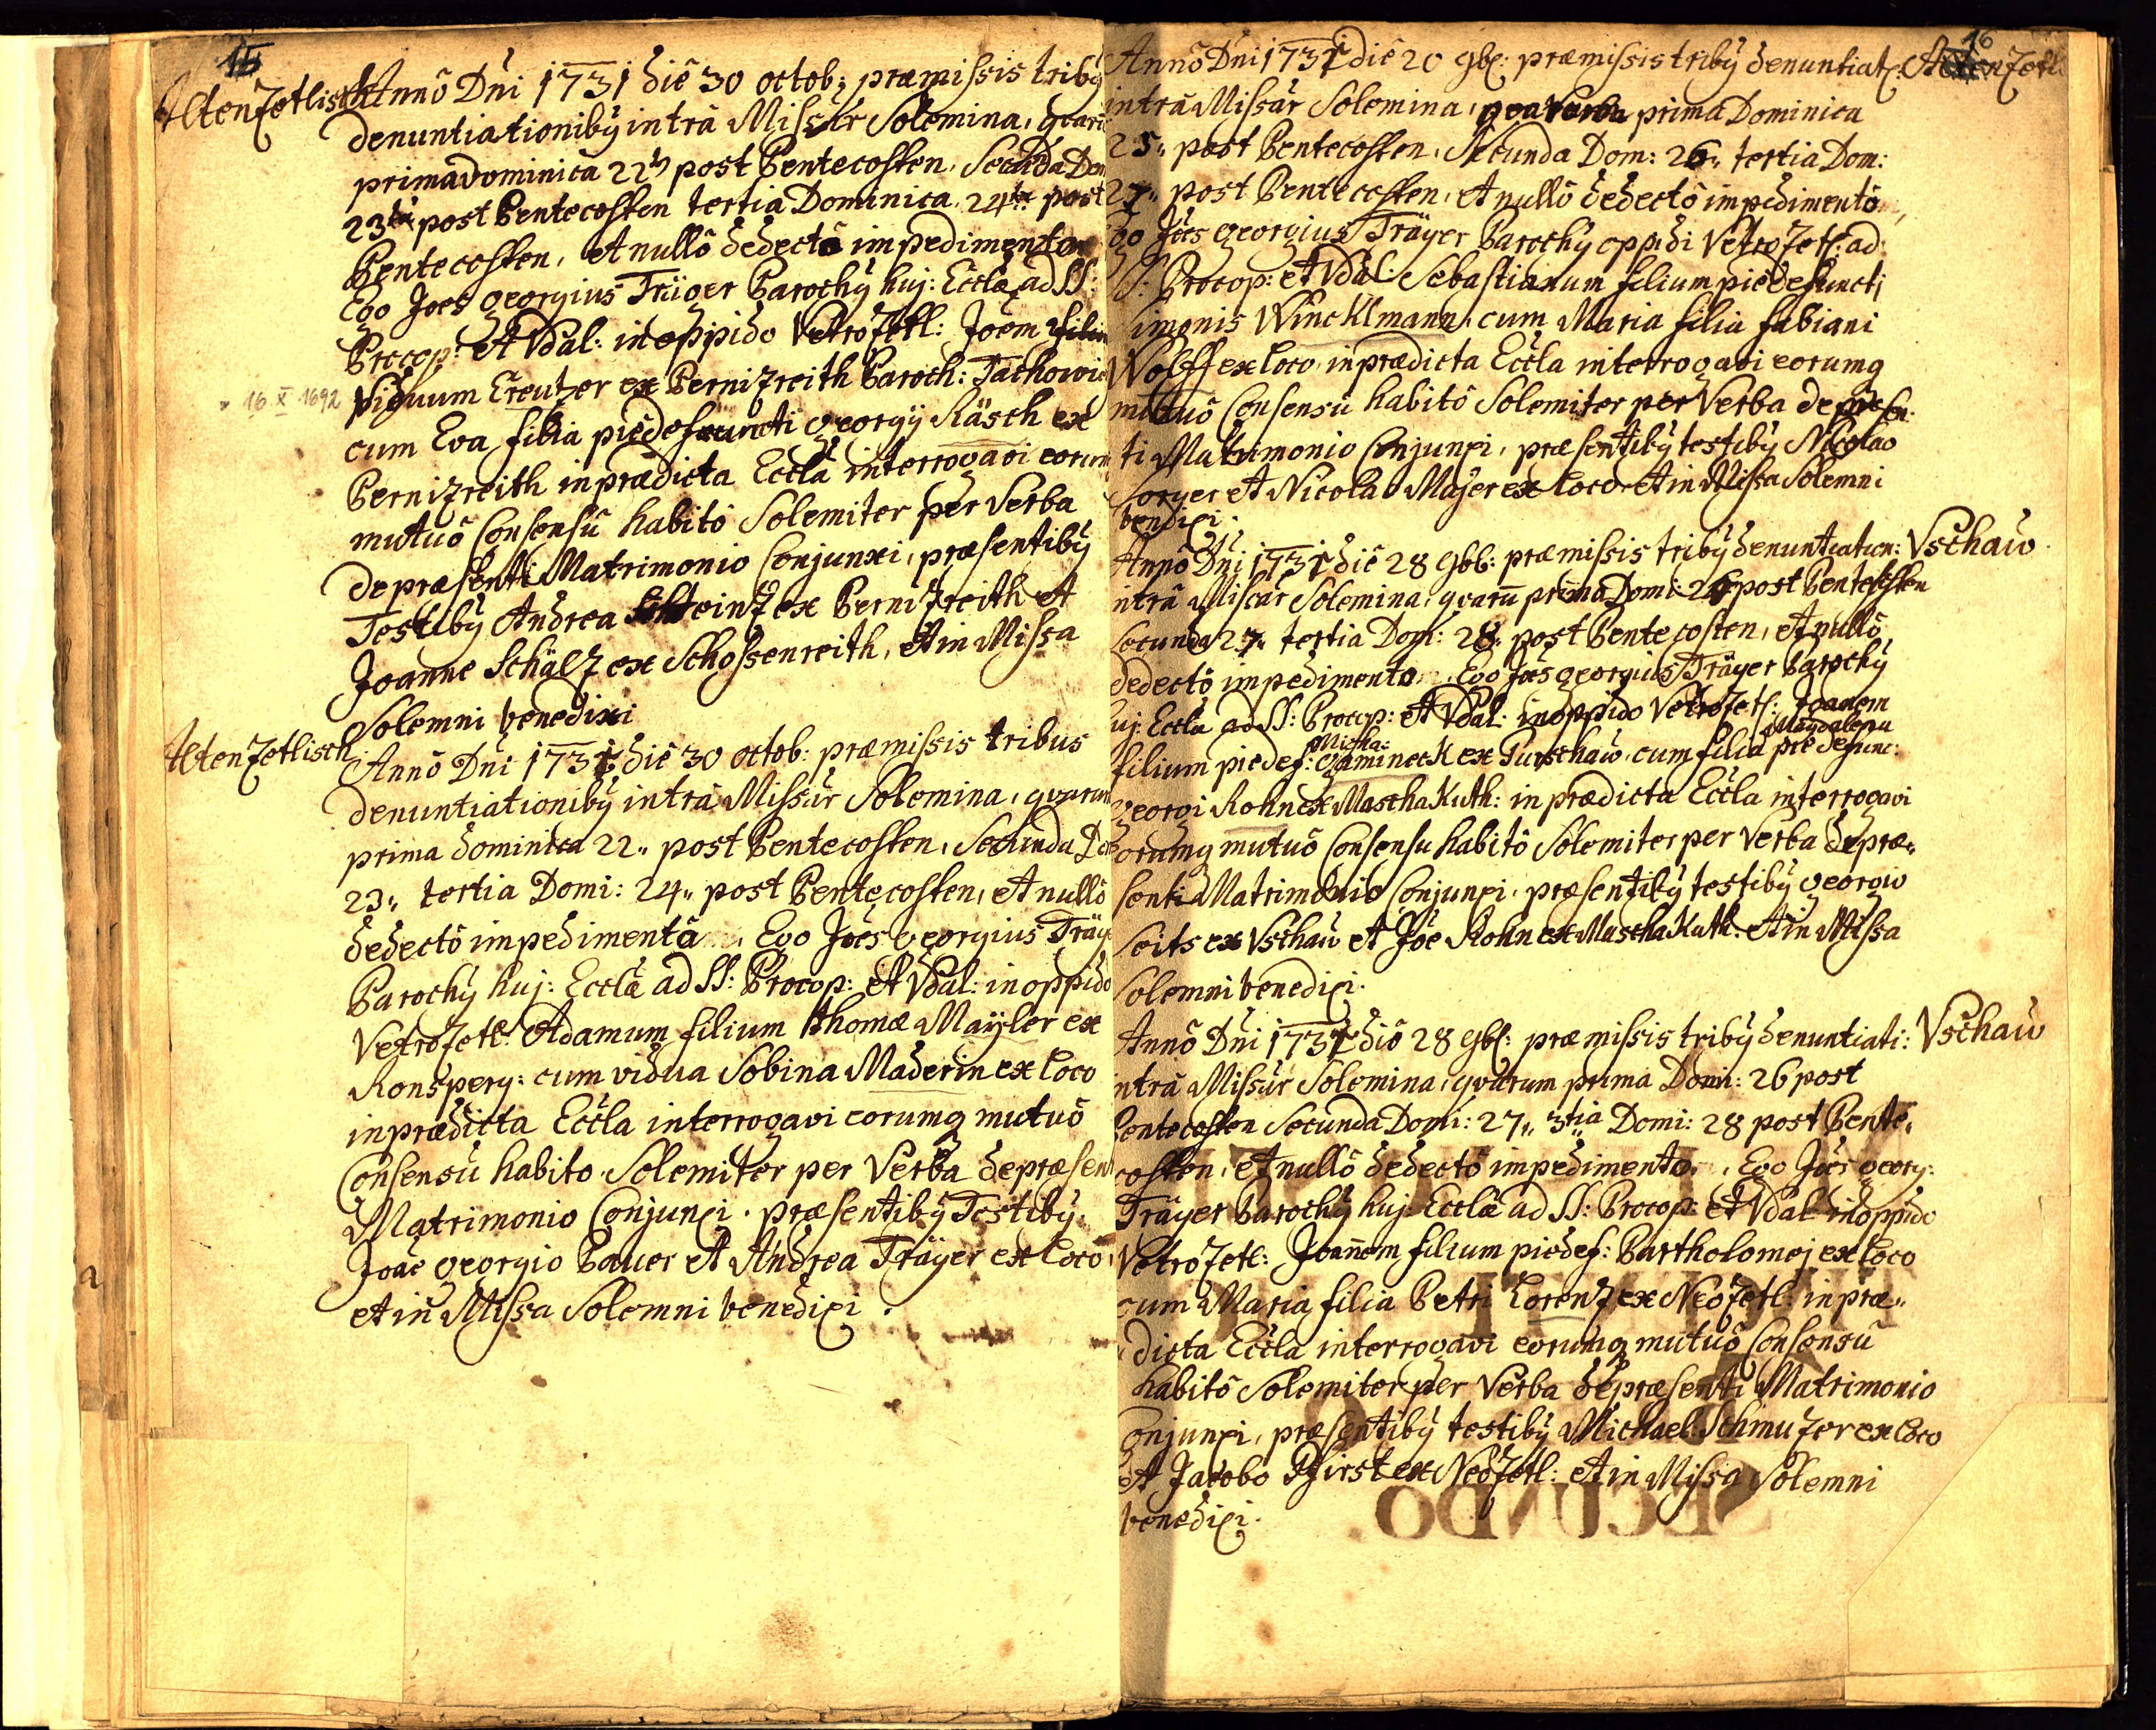 15
Altenzetlisch Annô Dni 1731 diê 30 octob: præmissis tribg
denuntiationibg intrà Missar Solemina, quarū
prima dominica 22 post Pentecosten, Secunda Dom
23 post Pentecosten tertia Dominica 24 post
Pentecosten, et nullô dedectô impedimento
Ego Joes georgius Träger Parochg huj: Eccla ad SS:
Procop: et Vdal: in oppido Vetrozetl: Joem filiu
* 16 X 1692 Creutzer ex Pernizreith Paroch: Tachowie
cum Eva filia piedefuncti georgÿ Räsch ex
Pernizreith in prædicta Eccla interrogavi eorum
mutuô Consensu habitô Solemiter per Verba
de præsenti Matrimonio Conjunxi, præsentibg
Testibg Andrea ex Pernizreith et
Joanne Schälz ex Schossenreith, et in Missa
Solemni benedixi
Altenzetlisch
Annô Dni 1731 diê 30 octob: præmissis tribus
denuntiationibg intrà Missar Solemina, quarum
prima dominica 22 " post Pentecosten, Secunda Dom
23 " tertia Domi: 24 " post Pentecosten, et nullô
dedectô impedimentô, Ego Joes georgius Träge
Parochg huj: Eccla ad SS: Procop: et Vdal: in oppido
Vetrozetl: Adamum filium thomæ Maÿler ex
Ronsperg: cum vidua Sobina Maderin ex loco
in prædicta Eccla interrogavi eorumq mutuô
Consensu habito Solemiter per Verba de præsen
Matrimonio Conjunxi. præsentibg Testibg
Joãe georgio Bauer et Andrea Träger ex locô
et in Missa Solemni benedixi.
16
Annô Dni 1731 diê 20 9b: præmissis tribg denuntiat: Altenzetl
intrà Missar Solemina, prima Dominica
25 " post Pentecosten, Secunda Dom: 26 " tertia Dom:
27 " post Pentecosten, et nullô dedectô impedimentô
go Joes georgius Träger Parochg oppidi Vetrozetl: ad
S: Procop: et Vdal: Sebastianum filium piedefuncti
imonis Wincklmann, cum Maria filia fabiani
Wolff ex loco, in prædicta Eccla interrogavi eorumq
mutuô Consensu habitô Solemiter per Verba de præsen
ti Matrimonio Conjunxi, præsentibg testibg Nicolao
et Nicolao Majer ex loco et in Missa Solemni
benedixi.
Annô Dni 1731 diê 28 9b: præmissis tribg denuntiation: Vschau
ntrà Missar Solemina, quarū prima Domi: 26 post Pentecosten
secunda 27 " tertia Dom: 28 " post Pentecosten, et nullô
dedectô impedimento, Ego Joes georgius Träger Parochg
uj: Eccla ad SS: Procop: et Vdal: in oppido Vetrozetl: Joanem
Micha: Magdalena
filium piedef: ex Gurschau, cum filia pie defunc:
georgi Rohn ex MaschaKuth: in prædicta Eccla interrogavi
orumq mutuô Consensu habitô Solemiter per Verba de præ"
senti Matrimonio Conjunxi, præsentibg testibg georgio
Seits ex Vschau et Joe Rohn ex MaschaKuth: et in Missa
Solemni benedixi.
Annô Dni 1731 diê 28 9b: præmissis tribg denuntiati: Vschau
ntrà Missar Solemina, quarum prima Domi: 26 post
Pentecosten Secunda Domi: 27 " 3tia Domi: 28 post Pente"
costen, et nullô dedectô impedimento, Ego Joes georg:
Träger Parochg huj: Eccla ad SS: Procop: et Vdal: in oppido
Vetrozetl: Joanem filium piedef: Bartholomej ex loco
cum Maria filia Petri Lorenz ex Neozetl: in præ"
dicta Eccla interrogavi eorumq mutuô Consensu
habitô Solemiter per Verba de præsenti Matrimonio
onjunxi, præsentibg testibg Michael: Schmuzer ex loco
et Jacobo Pfirst ex Neozetl: et in Missa Solemni
benedixi.
SECUNDO